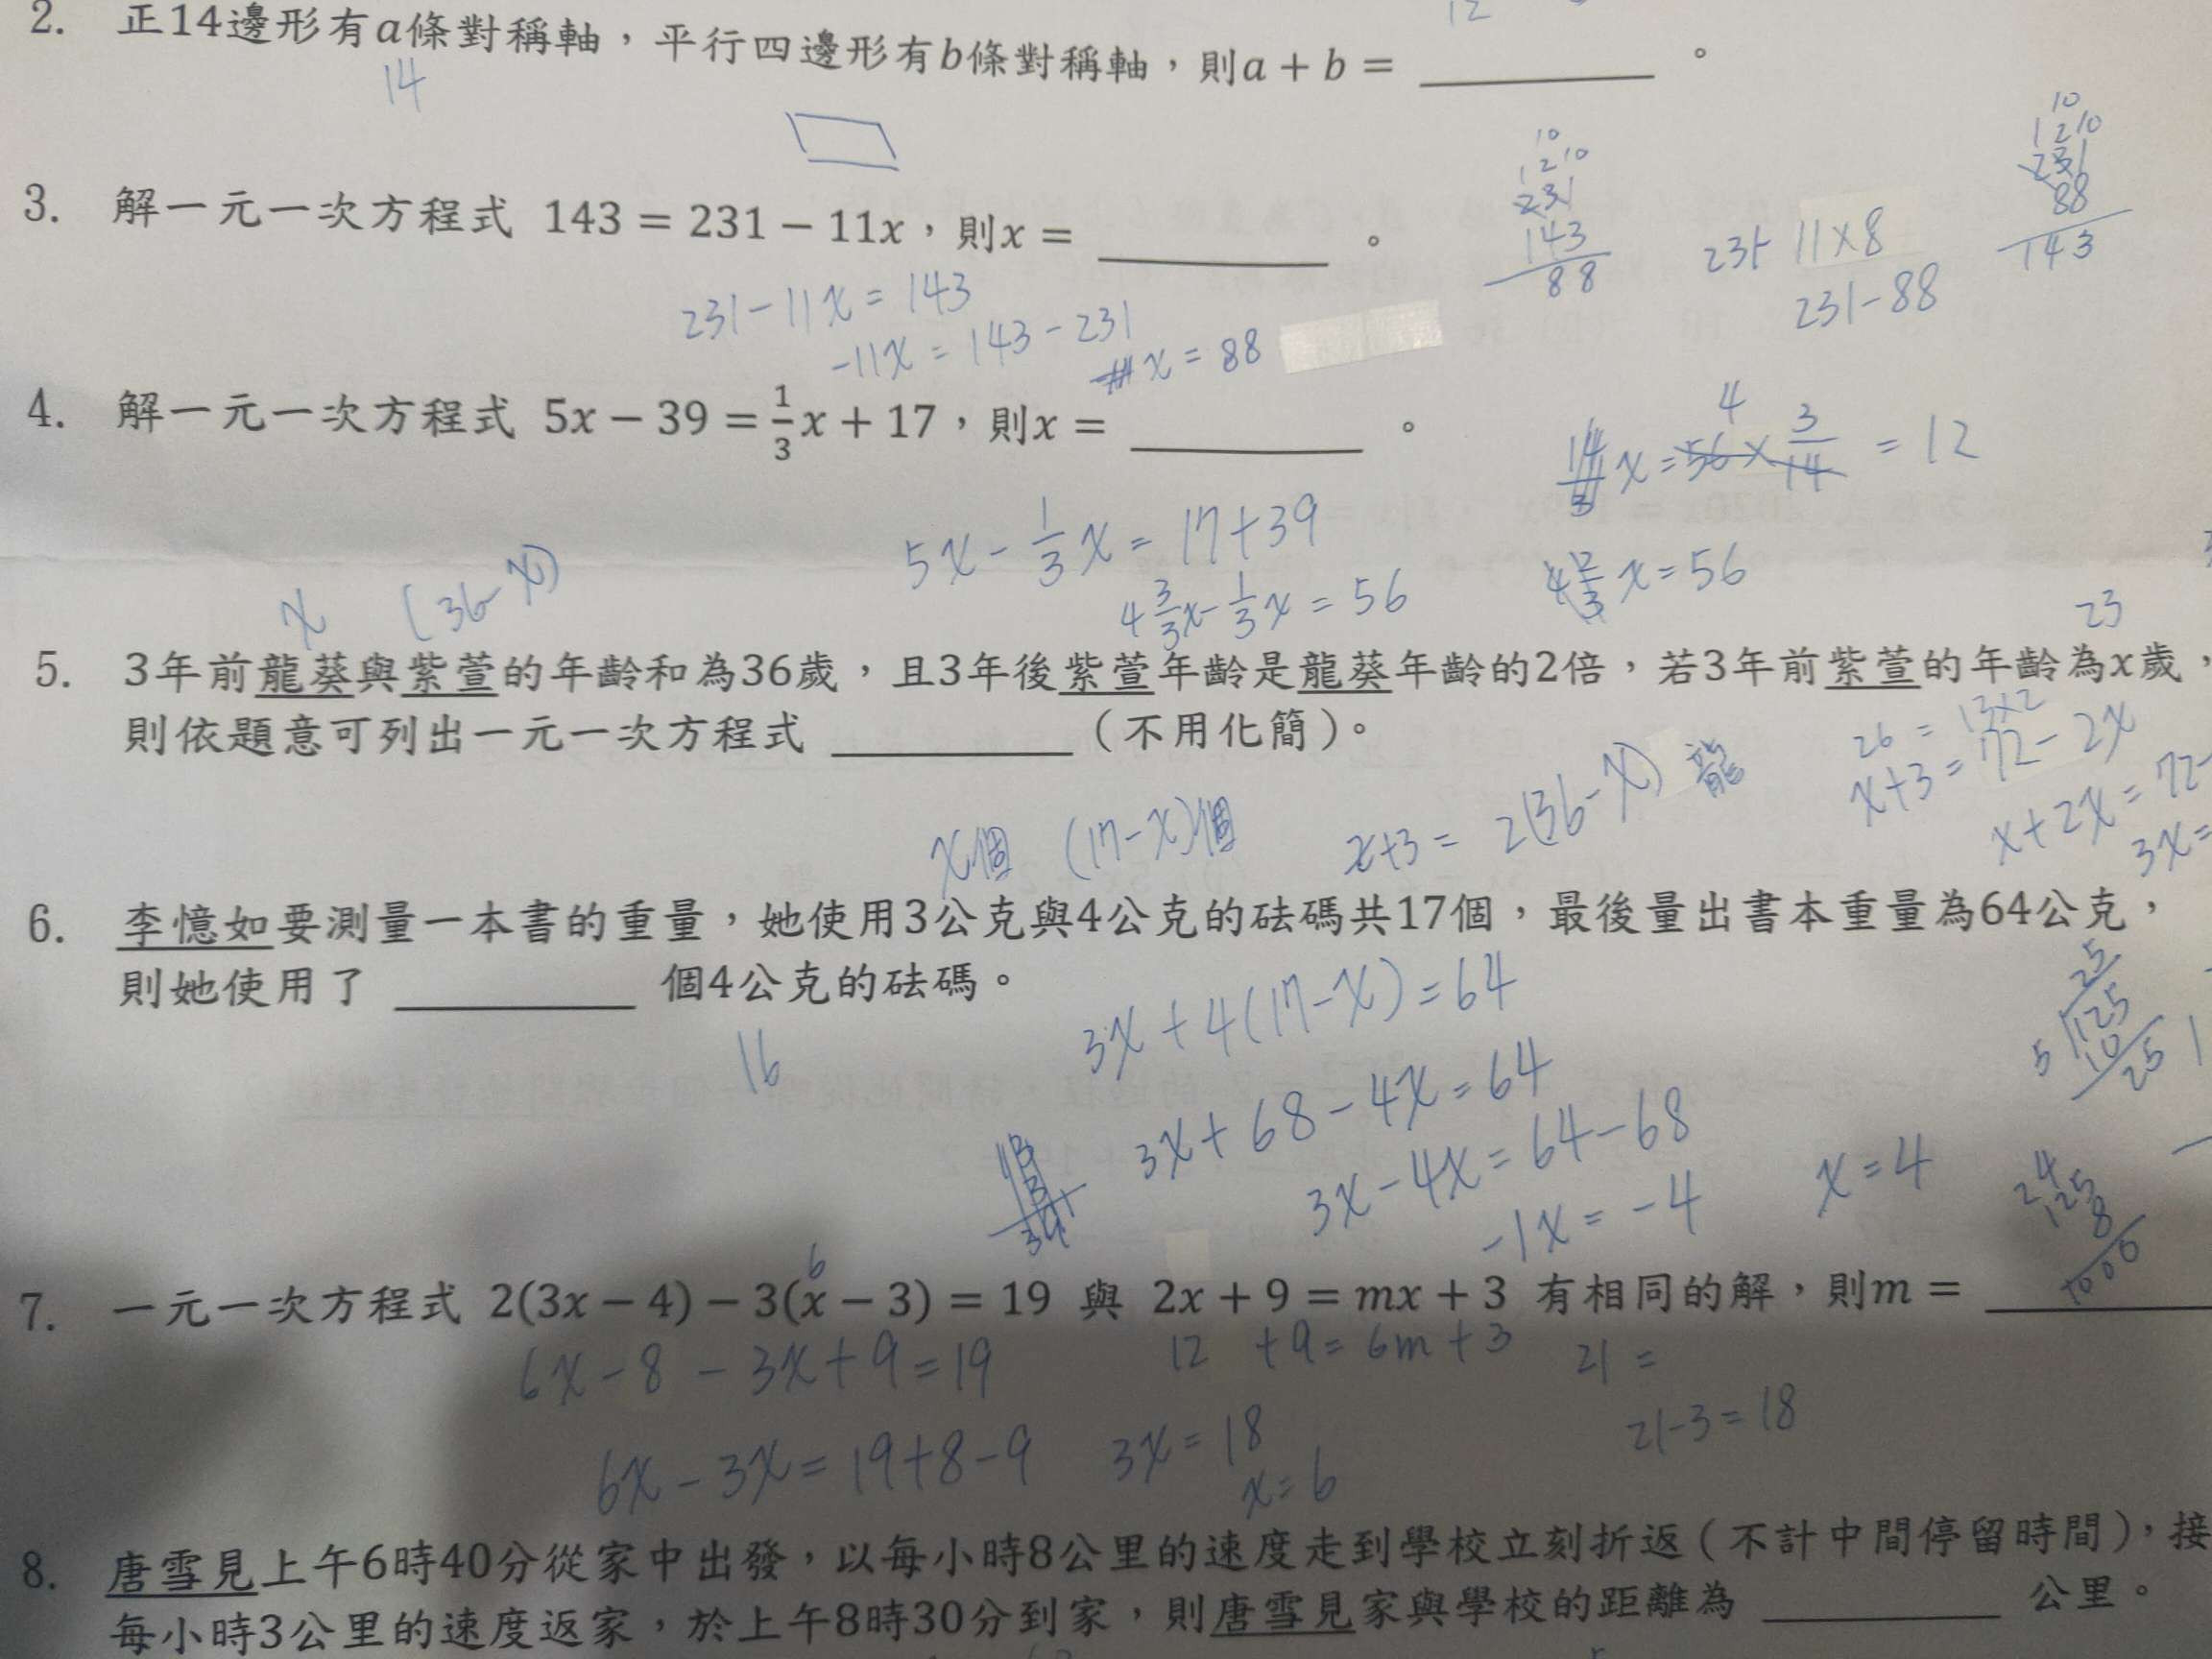 12
2. 正14邊形有a條對稱軸，平行四邊形有b條對稱軸，則a + b = ______ 。
14
3. 解一元一次方程式 143 = 231 − 11x，則x = ______ 。
231 − 11x = 143
−11x = 143 − 231
x = 88
10
1 2 10
231
143
88
231− 11×8
231−88
10
1 2 10
231
88
143
4. 解一元一次方程式 5x − 39 = 1/3 x + 17，則x = ______ 。
14/3 x = 56 × 3/14 = 12
4
5x − 1/3 x = 17+39
4 3/3 x − 1/3 x = 56
4 2/3 x = 56
x (36−x)
23
5. 3年前龍葵與紫萱的年齡和為36歲，且3年後紫萱年齡是龍葵年齡的2倍，若3年前紫萱的年齡為x歲，
則依題意可列出一元一次方程式 ______ （不用化簡）。
26 = 13×2
x+3 = 2(36−x) 龍
x+3 = 72−2x
x+2x = 72−
3x=
x個 (17−x)個
6. 李憶如要測量一本書的重量，她使用3公克與4公克的砝碼共17個，最後量出書本重量為64公克，
則她使用了 ______ 個4公克的砝碼。
16
3x + 4(17−x) = 64
3x + 68 − 4x = 64
3x − 4x = 64 − 68
−1x = −4
x = 4
25
5 125
10
25
24
125
8
1000
6
7. 一元一次方程式 2(3x − 4) − 3(x − 3) = 19 與 2x + 9 = mx + 3 有相同的解，則m = ______
6x − 8 − 3x + 9 = 19
12 + 9 = 6m + 3
21 =
21−3 = 18
6x − 3x = 19+8−9
3x = 18
x = 6
8. 唐雪見上午6時40分從家中出發，以每小時8公里的速度走到學校立刻折返（不計中間停留時間），接
每小時3公里的速度返家，於上午8時30分到家，則唐雪見家與學校的距離為 ______ 公里。